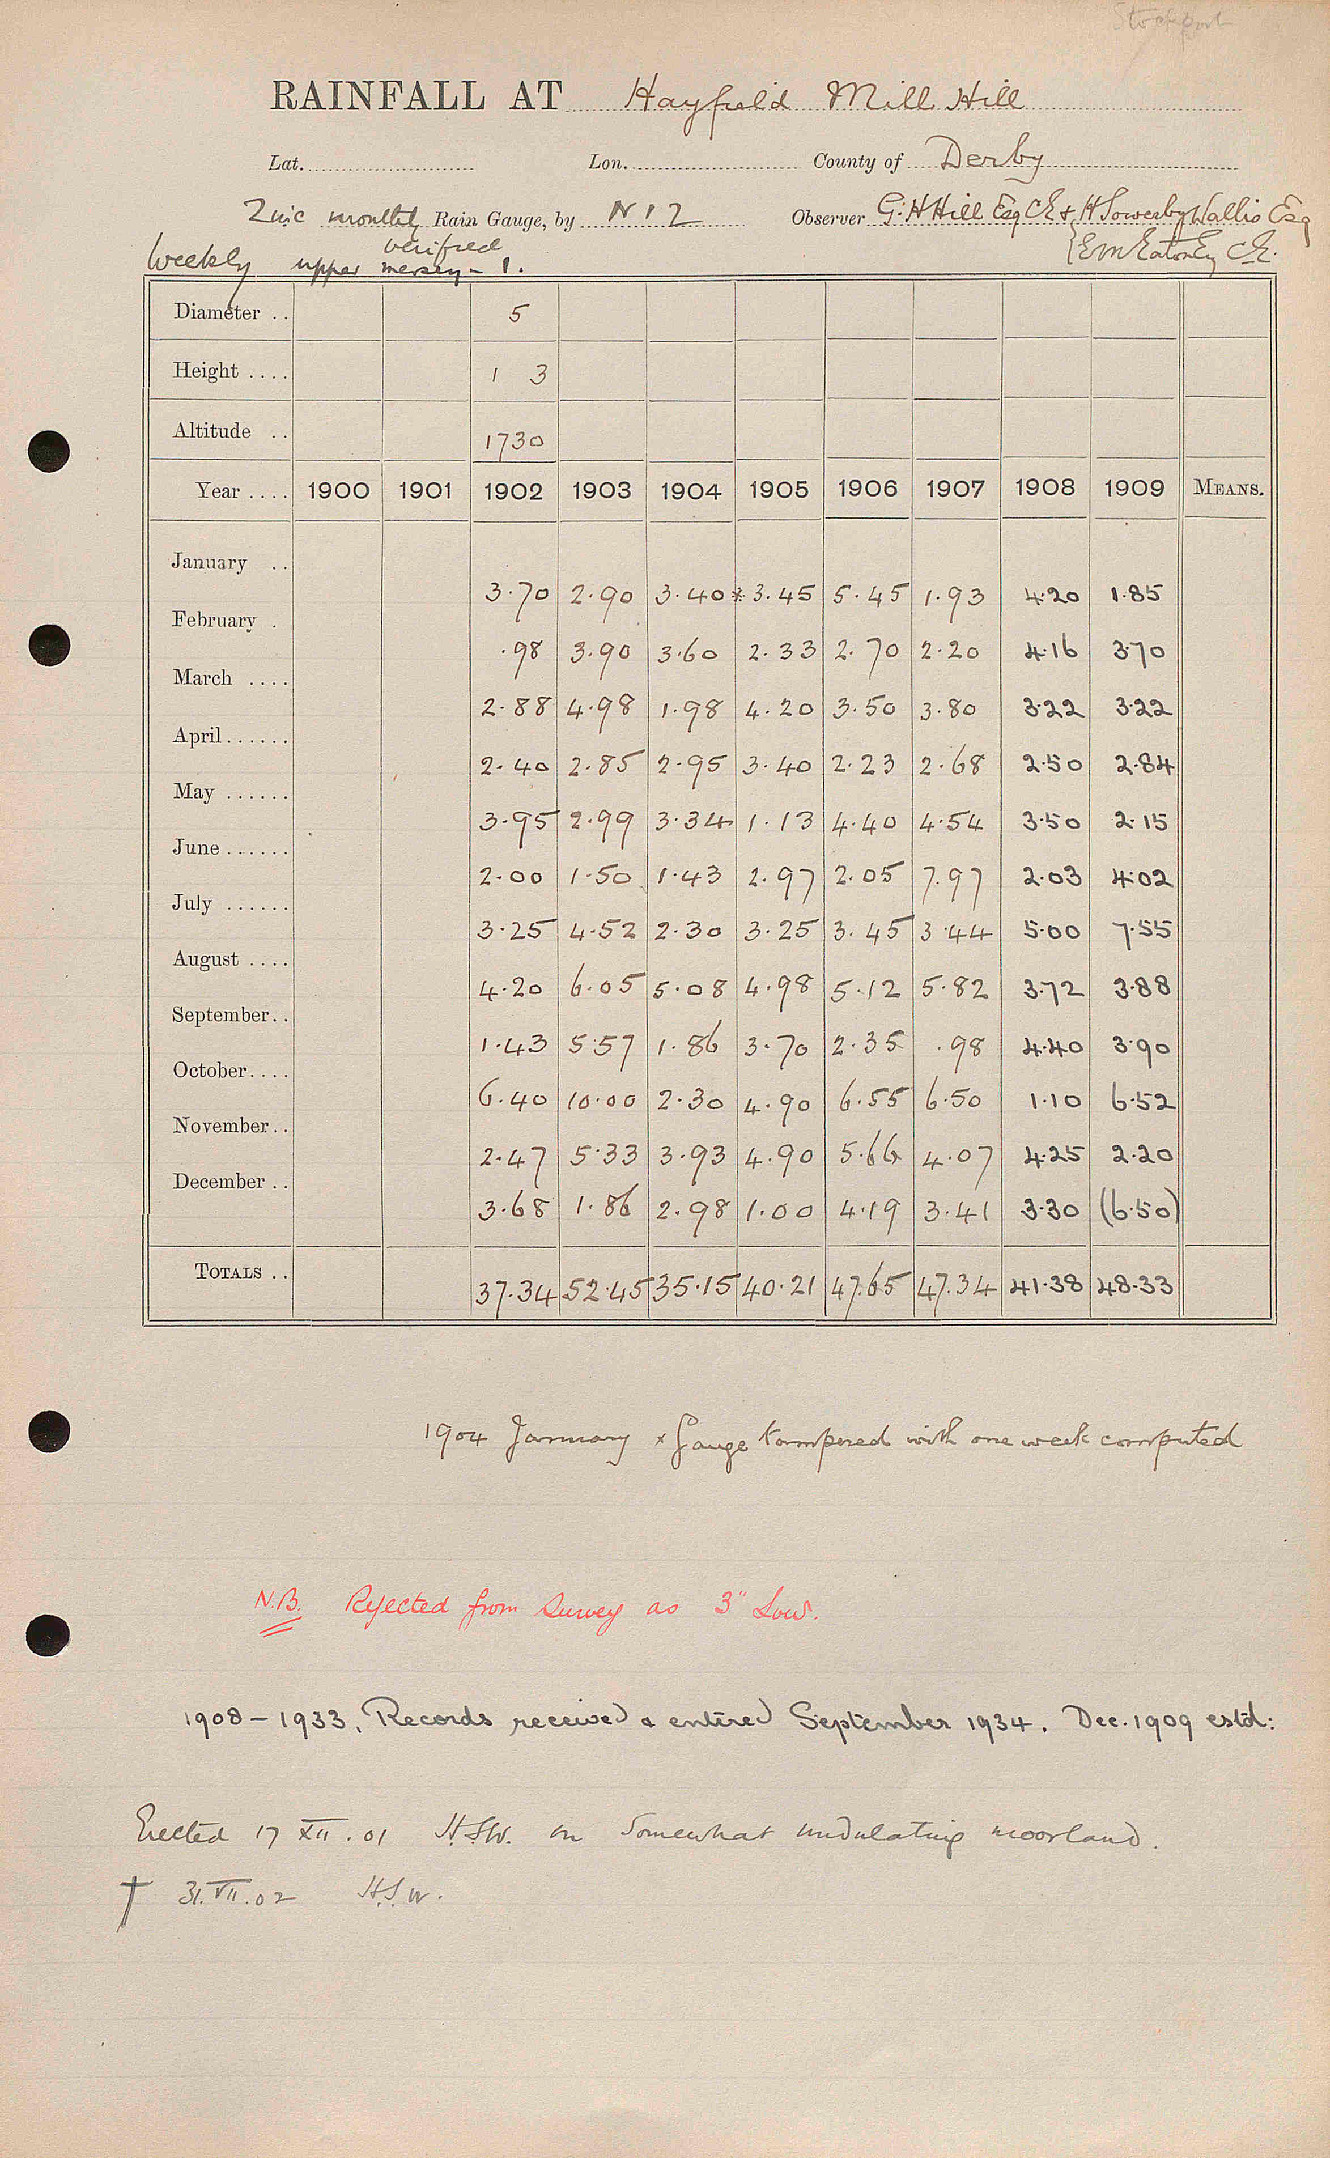 Stockport
RAINFALL AT Hayfield Mill Hill
Lat. Lon. County of Derby
Zinc monthly Rain Gauge, by No 12 Observer G. H Hill Esq CE & H Sowerby Wallis Esq
Weekly upper mersey - 1. verified
Diameter .. 5
Height .... 1 3
Altitude .. 1730
Year .... 1900 1901 1902 1903 1904 1905 1906 1907 1908 1909 MEANS.
January .. 3.70 2.90 3.40* 3.45 5.45 1.93 4.20 1.85
February . .98 3.90 3.60 2.33 2.70 2.20 4.16 3.70
March .... 2.88 4.98 1.98 4.20 3.50 3.80 3.22 3.22
April...... 2.40 2.85 2.95 3.40 2.23 2.68 2.50 2.84
May ...... 3.95 2.99 3.34 1.13 4.40 4.54 3.50 2.15
June ...... 2.00 1.50 1.43 2.97 2.05 7.97 2.03 4.02
July ...... 3.25 4.52 2.30 3.25 3.45 3.44 5.00 7.55
August .... 4.20 6.05 5.08 4.98 5.12 5.82 3.72 3.88
September.. 1.43 5.57 1.86 3.70 2.35 .98 4.40 3.90
October.... 6.40 10.00 2.30 4.90 6.55 6.50 1.10 6.52
November.. 2.47 5.33 3.93 4.90 5.66 4.07 4.25 2.20
December .. 3.68 1.86 2.98 1.00 4.19 3.41 3.30 (6.50)
TOTALS .. 37.34 52.45 35.15 40.21 47.65 47.34 41.38 48.33
1904 January x Gauge tampered with one week computed
N.B. Rejected from Survey as 3" Low.
1908 – 1933, Records received & entered September 1934. Dec. 1909 estd:
Erected 17 XII . 01 H.S.W. on Somewhat undulating moorland.
† 31.VII.02 H.S.W.